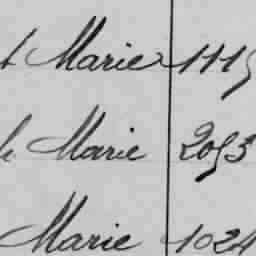 Marie 1115
Marie 2053
Marie 1024